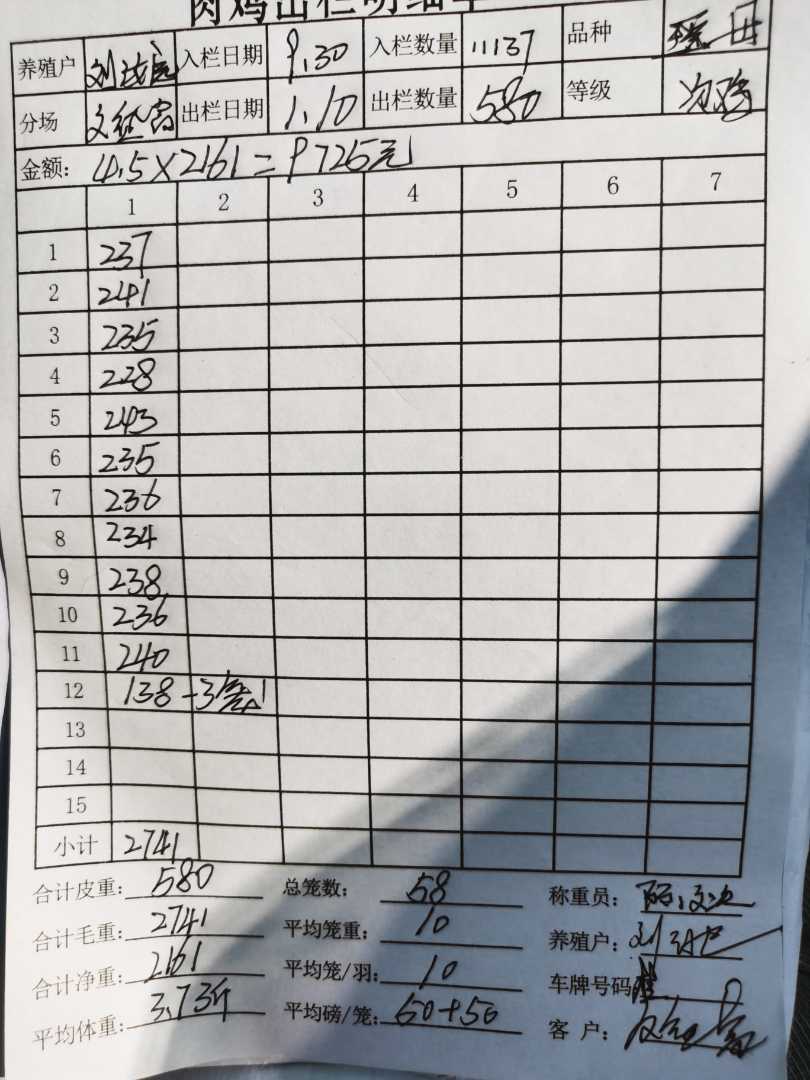 肉鸡出栏明细单
养殖户 刘 入栏日期 9.30 入栏数量 11137 品种
分场 出栏日期 1.10 出栏数量 580 等级 次鸡
金额: 4.5×2161=9725元
1 2 3 4 5 6 7
1 237
2 241
3 235
4 228
5 243
6 235
7 236
8 234
9 238
10 236
11 240
12 138-3笼
13
14
15
小计 2741
合计皮重: 580 总笼数: 58 称重员:
合计毛重: 2741 平均笼重: 10 养殖户: 刘
合计净重: 2161 平均笼/羽: 10 车牌号码
平均体重: 3.73斤 平均磅/笼: 客 户: